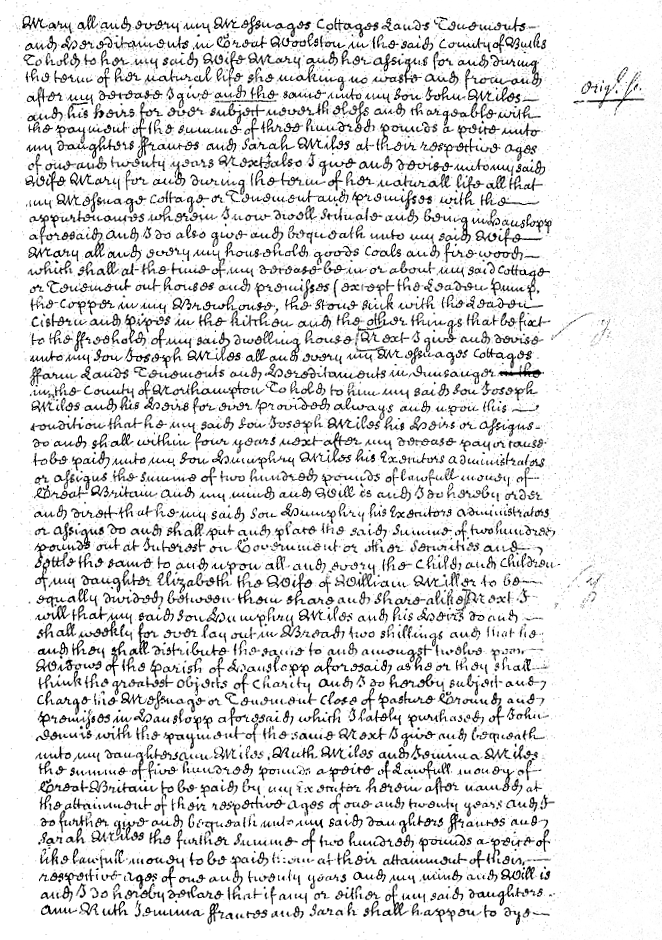 Mary all and every my Messuages Cottages Lands Tenements
and Hereditaments in Great Woolston in the said County of Bucks
To hold to her my said Wife Mary and her Assigns for and during
the term of her natural life she making no waste and from and
after my decease I give and the same unto my son John Miles
and his heirs for ever subject nevertheless and chargeable with
the payment of the summe of three hundred pounds a peice unto
my daughters ffrances and Sarah Miles at their respective ages
of one and twenty years Next also I give and devise unto my said
Wife Mary for and during the term of her naturall life all that
my Messuage Cottage or Tenement and premisses with the
appurtenances wherein I now dwell scituate and being in Hanslopp
aforesaid And I do also give and bequeath unto my said Wife
Mary all and every my household goods Coals and fire wood
which shall at the time of my decease be in or about my said Cottage
or Tenement out houses and premisses (except the Leaden Pump,
the Copper in my Brewhouse, the stone sink with the Leaden
Cistern and pipes in the kitchen and the other things that be fixt
to the ffreehold of my said dwelling house Next I give and devise
unto my Son Joseph Miles all and every my Messuages Cottages
ffarm Lands Tenements and Hereditaments in in the
in the County of Northampton To hold to him my said Son Joseph
Miles and his Heirs for ever Provided always and upon this
condition that he my said Son Joseph Miles his Heirs or Assigns
do and shall within four years next after my decease pay or cause
to be paid unto my Son Humphry Miles his Executors administrators
or Assigns the summe of two hundred pounds of lawfull money of
Great Britain And my mind and Will is and I do hereby order
and direct that he my said Son Humphry his Executors administrators
or assigns do and shall put and place the said Summe of two hundred
pounds out at Interest on Government or other Securities and
settle the same to and upon all and every the Child and Children
of my daughter Elizabeth the Wife of William Miller to be
equally divided between them share and share alike Next I
will that my said Son Humphry Miles and his Heirs do and
shall weekly for ever lay out in Bread two shillings and that he
and they shall distribute the same to and amongst twelve poor
Widows of the parish of Hanslopp aforesaid as he or they shall
think the greatest objects of Charity And I do hereby subject and
Charge the Messuage or Tenement Close of Pasture Ground and
premisses in Hanslopp aforesaid which I lately purchased of John
Dennis with the payment of the same Next I give and bequeath
unto my daughters Ann Miles, Ruth Miles and Jemima Miles
the summe of five hundred pounds a peice of Lawfull money of
Great Britain to be paid by my Executor herein after named at
the attainment of their respective ages of one and twenty years And I
do further give and bequeath unto my said daughters ffrances and
Sarah Miles the further summe of two hundred pounds a peice of
like lawfull money to be paid them at their attainment of their
respective ages of one and twenty years And my mind and Will is
and I do hereby declare that if any or either of my said daughters
Ann Ruth Jemima ffrances and Sarah shall happen to dye